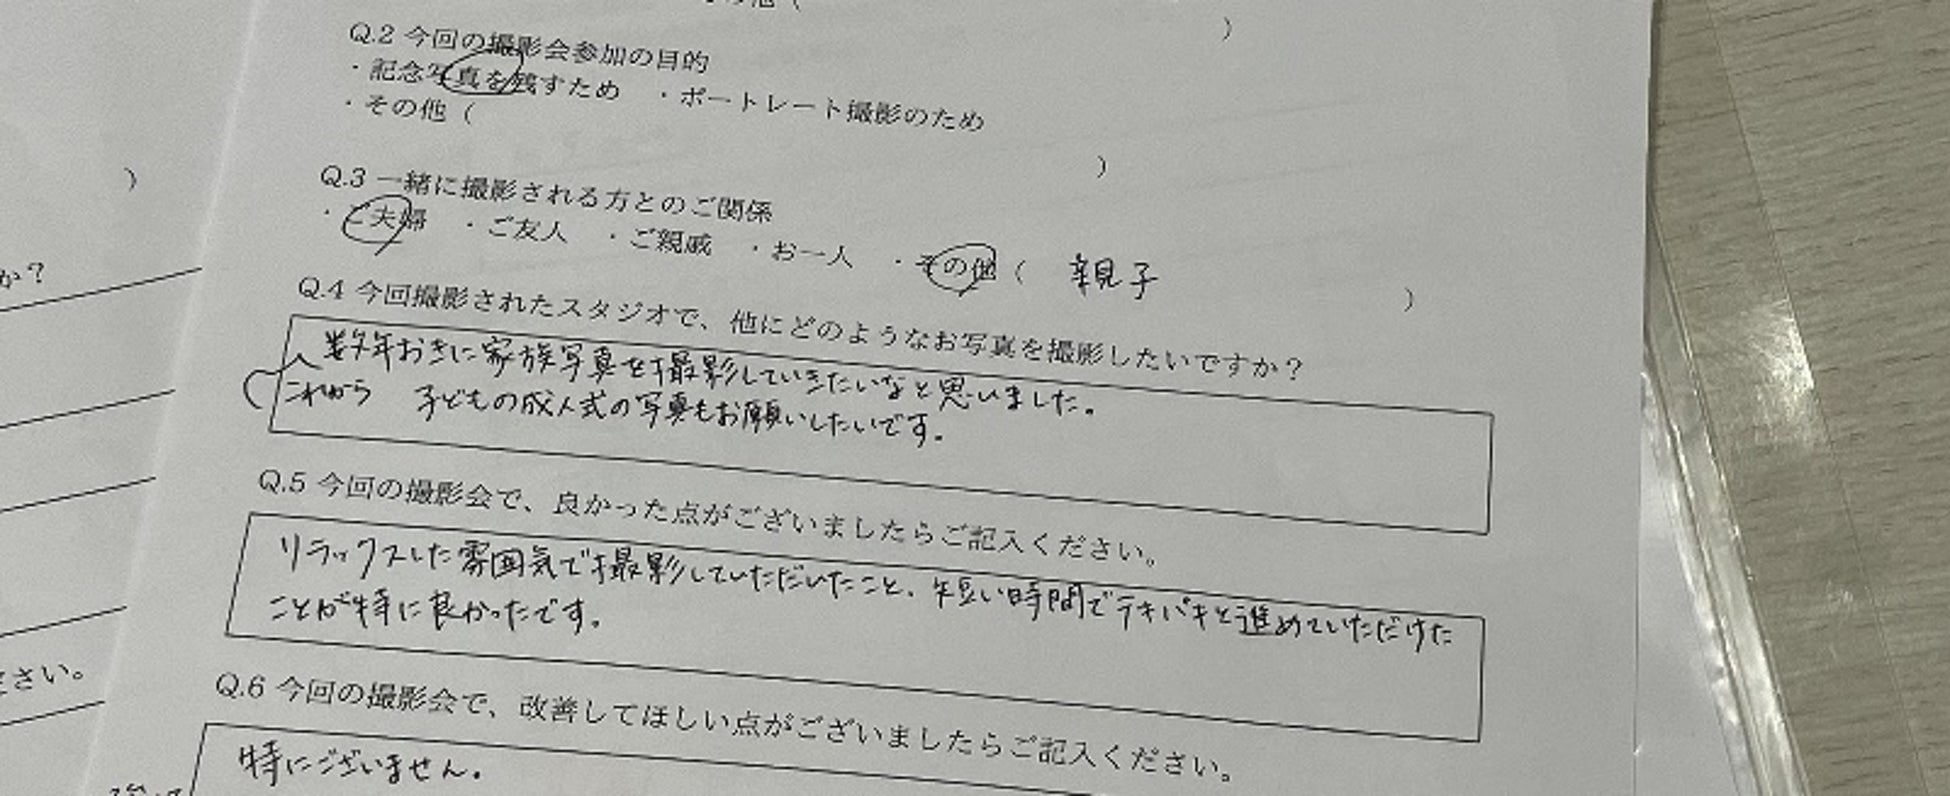 その他（ ）
Q.2 今回の撮影会参加の目的
・記念写真を残すため ・ポートレート撮影のため
・その他（ ）
Q.3 一緒に撮影される方とのご関係
・ご夫婦 ・ご友人 ・ご親戚 ・お一人 ・その他（ 親子 ）
Q.4 今回撮影されたスタジオで、他にどのようなお写真を撮影したいですか？
数年おきに家族写真を撮影していきたいなと思いました。
これから 子どもの成人式の写真もお願いしたいです。
Q.5 今回の撮影会で、良かった点がございましたらご記入ください。
リラックスした雰囲気で撮影していただいたこと、短い時間でテキパキと進めていただけた
ことが特に良かったです。
Q.6 今回の撮影会で、改善してほしい点がございましたらご記入ください。
特にございません。
）
か？
ださい。